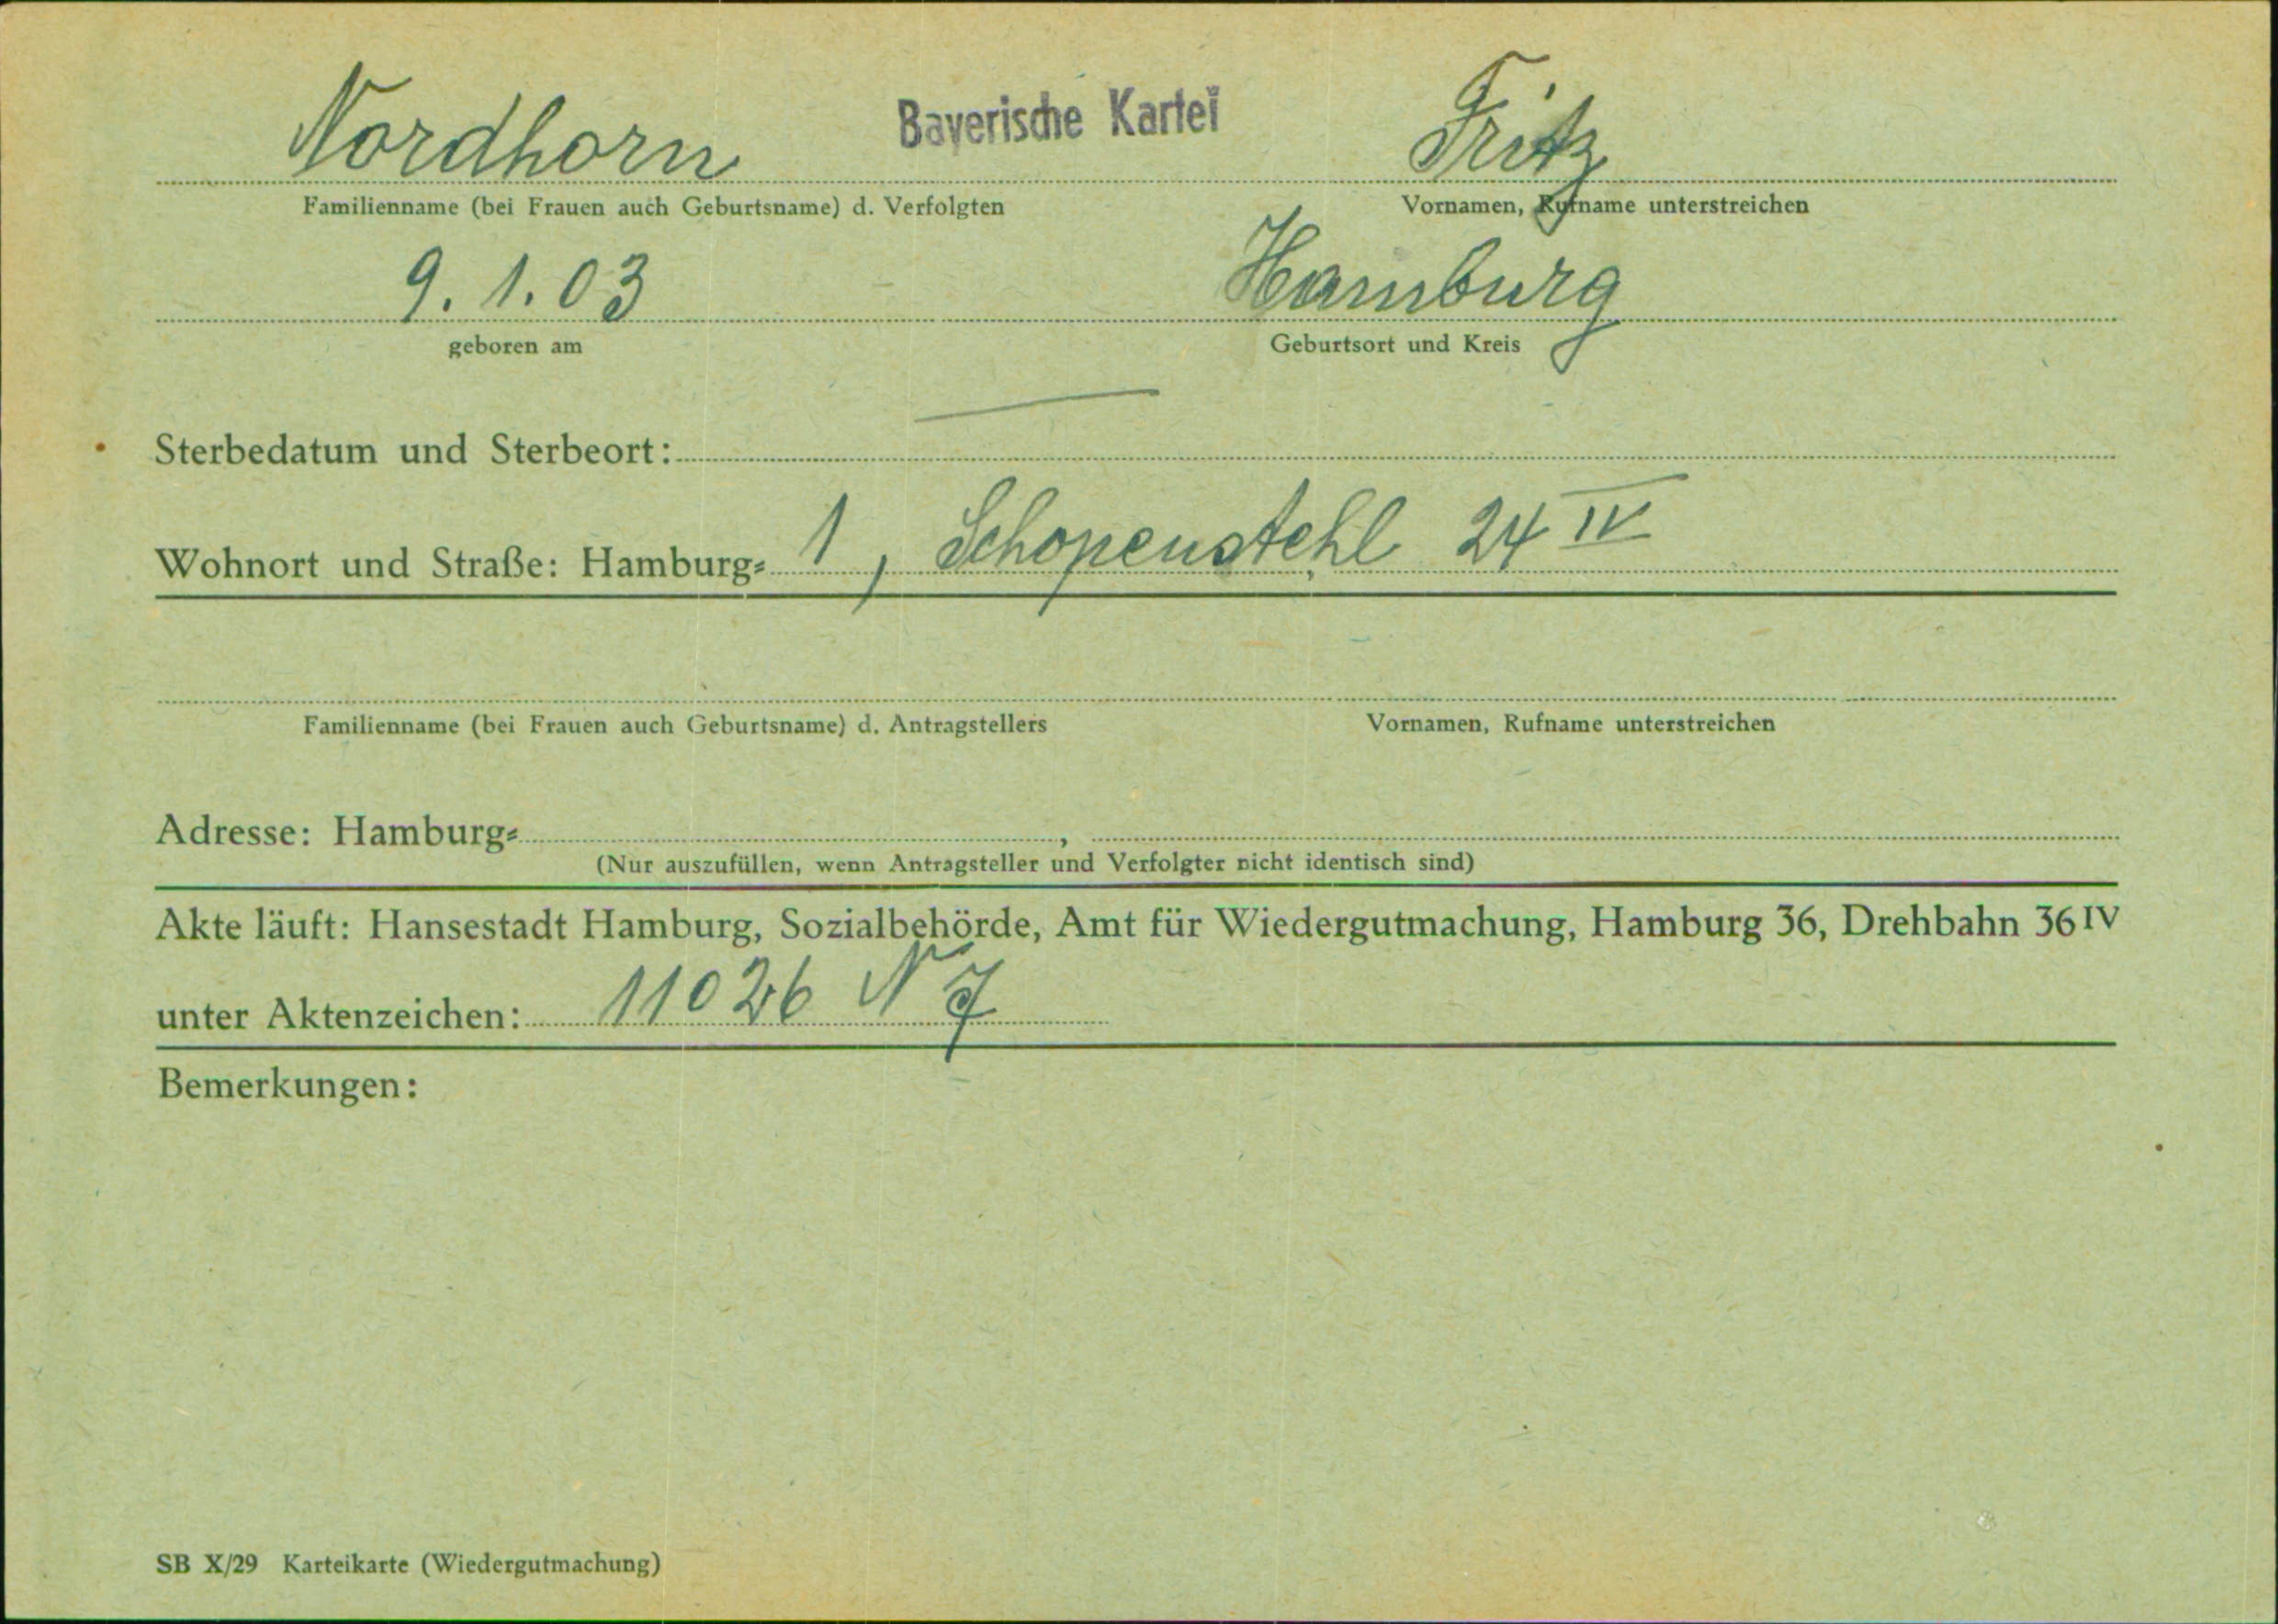 Nordhorn Bayerische Kartei Fritz
Familienname (bei Frauen auch Geburtsname) d. Verfolgten Vornamen, Rufname unterstreichen
9. 1. 03 Hamburg
geboren am Geburtsort und Kreis
Sterbedatum und Sterbeort:
Wohnort und Straße: Hamburg- 1, Schopenstehl 24 IV
Familienname (bei Frauen auch Geburtsname) d. Antragstellers Vornamen, Rufname unterstreichen
Adresse: Hamburg- ,
(Nur auszufüllen, wenn Antragsteller und Verfolgter nicht identisch sind)
Akte läuft: Hansestadt Hamburg, Sozialbehörde, Amt für Wiedergutmachung, Hamburg 36, Drehbahn 36 IV
unter Aktenzeichen: 11026 N 7
Bemerkungen:
SB X/29 Karteikarte (Wiedergutmachung)